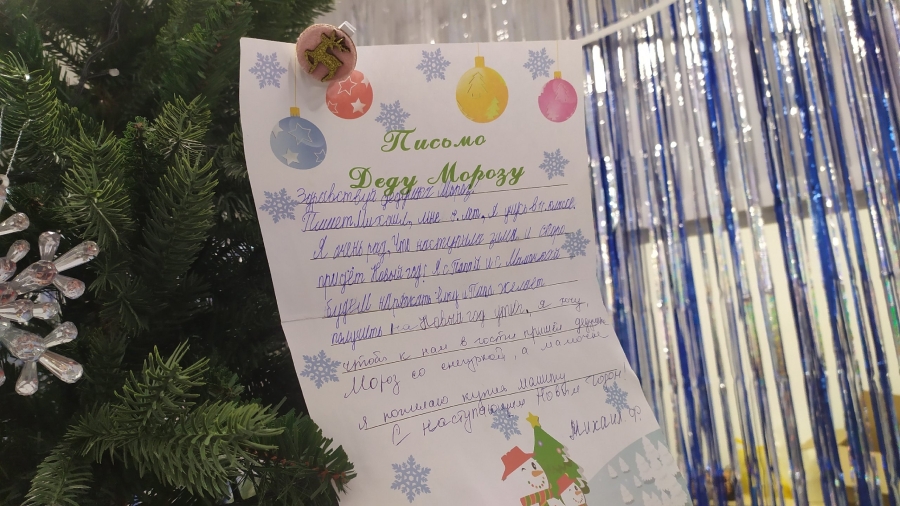 Письмо
Деду Морозу
Здравствуй Дедушка Мороз!
Пишет Михаил, мне лет, я учусь в классе.
Я очень рад, что наступила зима, и скоро
придёт Новый год! Я с Папой и с Мамочкой
будем наряжать ёлку. Папа желает
получить на Новый год утюг, я хочу,
чтобы к нам в гости пришёл дедушка
Мороз со снегуркой, а мамочке
я пожелаю купил машину
С наступающим Новым Годом!
Михаил Ф.